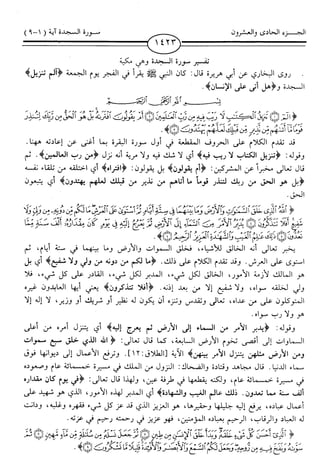 الجزء الحادى والعشرون
١٤٢٣
سورة السجدة آية (١-٩)
تفسير سورة السجدة وهي مكية
روى البخاري عن أبي هريرة قال: كان النبي ﷺ يقرأ في الفجر يوم الجمعة ﴿الم تنزيل﴾
السجدة و﴿هل أتى على الإنسان﴾.
بسم الله الرحمن الرحيم
﴿الم ۝ تنزيل الكتاب لا ريب فيه من رب العالمين ۝ أم يقولون افتراه بل هو الحق من ربك لتنذر
قوما ما أتاهم من نذير من قبلك لعلهم يهتدون ۝﴾
قد تقدم الكلام على الحروف المقطعة في أول سورة البقرة بما أغنى عن إعادته ههنا.
وقوله: ﴿تنزيل الكتاب لا ريب فيه﴾ أي لا شك فيه ولا مرية أنه نزل ﴿من رب العالمين﴾. ثم
قال تعالى مخبراً عن المشركين: ﴿أم يقولون افتراه﴾ بل يقولون: ﴿افتراه﴾ أي اختلقه من تلقاء نفسه
﴿بل هو الحق من ربك لتنذر قوماً ما أتاهم من نذير من قبلك لعلهم يهتدون﴾ أي يتبعون
الحق.
﴿الله الذي خلق السموات والأرض وما بينهما في ستة أيام ثم استوى على العرش ما لكم من دونه من ولي ولا
شفيع أفلا تتذكرون ۝ يدبر الأمر من السماء إلى الأرض ثم يعرج إليه في يوم كان مقداره ألف سنة مما
تعدون ۝ ذلك عالم الغيب والشهادة العزيز الرحيم ۝﴾
يخبر تعالى أنه الخالق للأشياء، فخلق السموات والأرض وما بينهما في ستة أيام، ثم
استوى على العرش. وقد تقدم الكلام على ذلك. ﴿ما لكم من دونه من ولي ولا شفيع﴾ أي بل
هو المالك لأزمة الأمور، الخالق لكل شيء، المدبر لكل شيء، القادر على كل شيء، فلا
ولي لخلقه سواه، ولا شفيع إلا من بعد إذنه. ﴿أفلا تتذكرون﴾ يعني أيها العابدون غيره
المتوكلون على من عداه، تعالى وتقدس وتنزه أن يكون له نظير أو شريك أو وزير، لا إله إلا
هو ولا رب سواه.
وقوله: ﴿يدبر الأمر من السماء إلى الأرض ثم يعرج إليه﴾ أي يتنزل أمره من أعلى
السماوات إلى أقصى تخوم الأرض السابعة، كما قال تعالى: ﴿الله الذي خلق سبع سموات
ومن الأرض مثلهن يتنزل الأمر بينهن﴾ الآية [الطلاق: ١٢]. وترفع الأعمال إلى ديوانها فوق
سماء الدنيا. قال مجاهد وقتادة والضحاك: النزول من الملك في مسيرة خمسمائة عام وصعوده
في مسيرة خمسمائة عام، ولكنه يقطعها في طرفة عين، ولهذا قال تعالى: ﴿في يوم كان مقداره
ألف سنة مما تعدون. ذلك عالم الغيب والشهادة﴾ أي المدبر لهذه الأمور، الذي هو شهيد على
أعمال عباده، يرفع إليه جليلها وحقيرها، هو العزيز الذي قد عز كل شيء فقهره وغلبه، ودانت
له العباد والرقاب، الرحيم بعباده المؤمنين، فهو عزيز في رحمته رحيم في عزته.
﴿الذي أحسن كل شيء خلقه وبدأ خلق الإنسان من طين ۝ ثم جعل نسله من سلالة من ماء مهين ۝ ثم
سواه ونفخ فيه من روحه وجعل لكم السمع والأبصار والأفئدة قليلا ما تشكرون ۝﴾